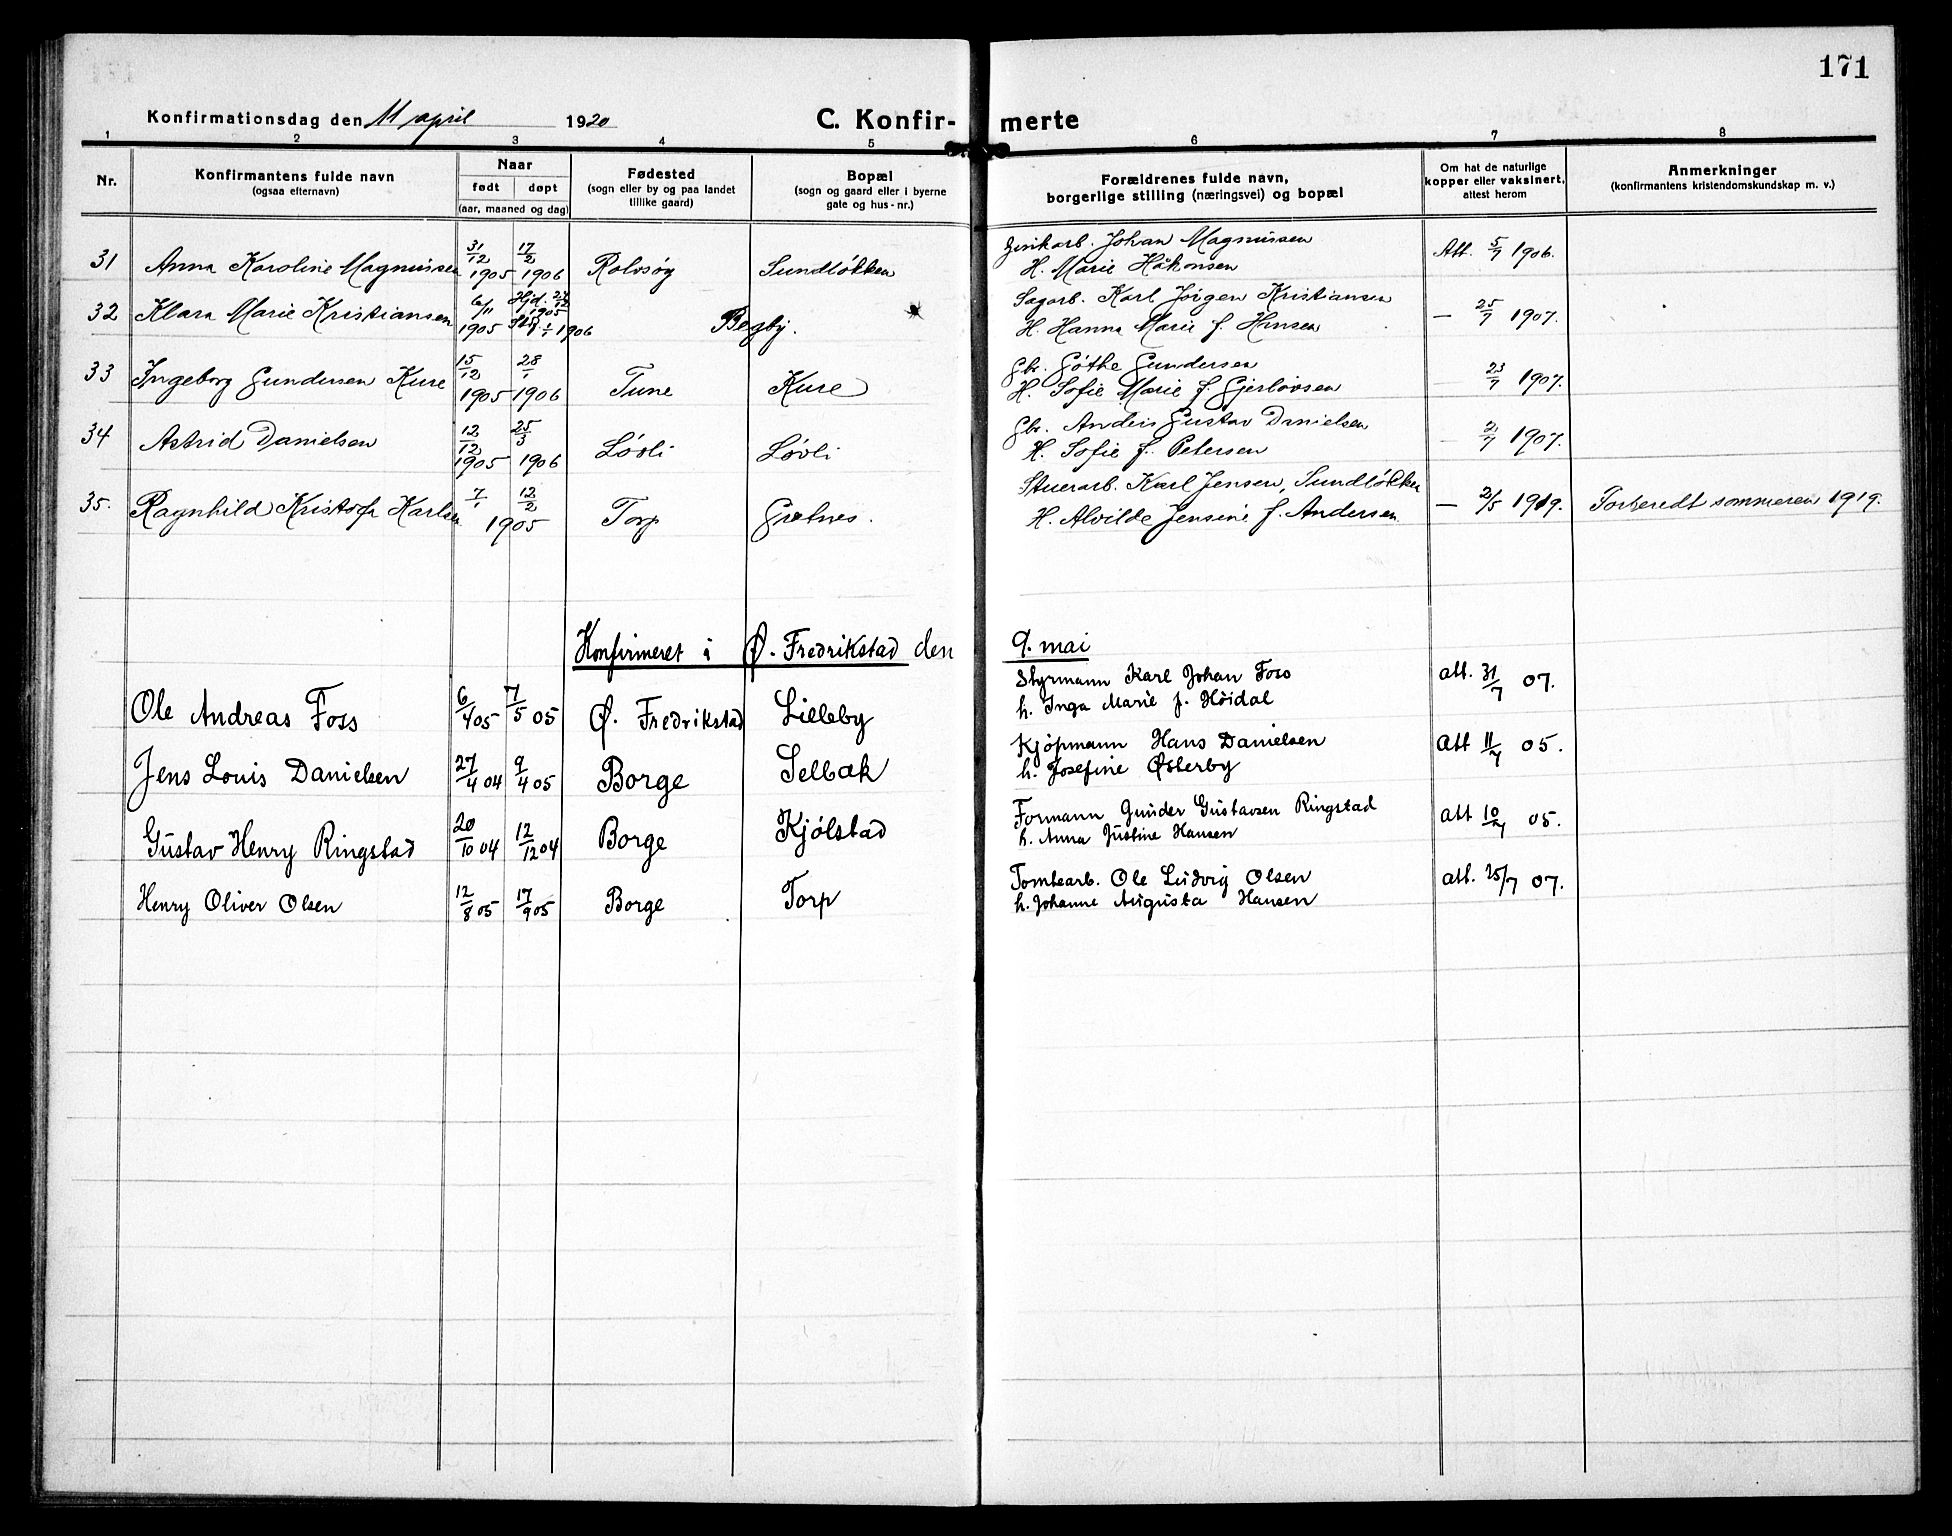 171
Konfirmationsdag den 11 april 1920
C. Konfir- merte
1 2 3 4 5 6 7 8
Nr.
Konfirmantens fulde navn
(ogsaa efternavn)
Naar
født døpt
(aar, maaned og dag)
Fødested
(sogn eller by og paa landet
tillike gaard)
Bopæl
(sogn og gaard eller i byerne
gate og hus-nr.)
Forældrenes fulde navn,
borgerlige stilling (næringsvei) og bopæl
Om hat de naturlige
kopper eller vaksinert,
attest herom
Anmerkninger
(konfirmantens kristendomskundskap m. v.)
31 Anna Karoline Magnussen 31/12 1905 17/2 1906 Rolvsøy Sundløkken Johan Magnussen Att. 5/7 1906.
H. Marie Håkonsen
32 Klara Marie Kristiansen 6/11 1905 Hjd. 24/12 1905 1/1 1906 Begby. Sagarb. Karl Jørgen Kristiansen — 25/7 1907.
H. Hanna Marie f. Hansen
33 Ingeborg Gundersen Kure 15/12 1905 28/1 1906 Tune Kure Gbr. Gøthe Gundersen — 23/7 1907.
H. Sofie Marie f. Gjerløvsen
34 Astrid Danielsen 12/12 1905 25/3 1906 Løvli Løvli Gbr. Anders Gustav Danielsen — 2/7 1907.
H. Sofie f. Petersen
35. Ragnhild Kristofa Karlsen 7/1 12/2 1905 Torp Grætnes. Stuerarb. Karl Jensen, Sundløkken — 2/5 1919. Forberedt sommeren 1919.
H. Alvilde Jensine f. Andersen
Konfirmeret i Ø. Fredrikstad den 9. mai
Ole Andreas Foss 6/4 05 7/5 05 Ø. Fredrikstad Lilleby Styrmann Karl Johan Foss att. 31/7 07.
h. Inga Marie f. Höidal
Jens Louis Danielsen 27/4 04 9/4 05 Borge Selbak Kjøpmann Hans Danielsen Att 11/7 05.
h. Josefine Østerby
Gustav Henry Ringstad 20/10 04 12/12 04 Borge Kjølstad Formann Gunder Gustavsen Ringstad att 10/7 05.
h. Anna Justine Hansen
Henry Oliver Olsen 12/8 05 17/9 05 Borge Torp Tomtearb. Ole Ludvig Olsen att. 25/7 07.
h. Johanne Augusta Hansen